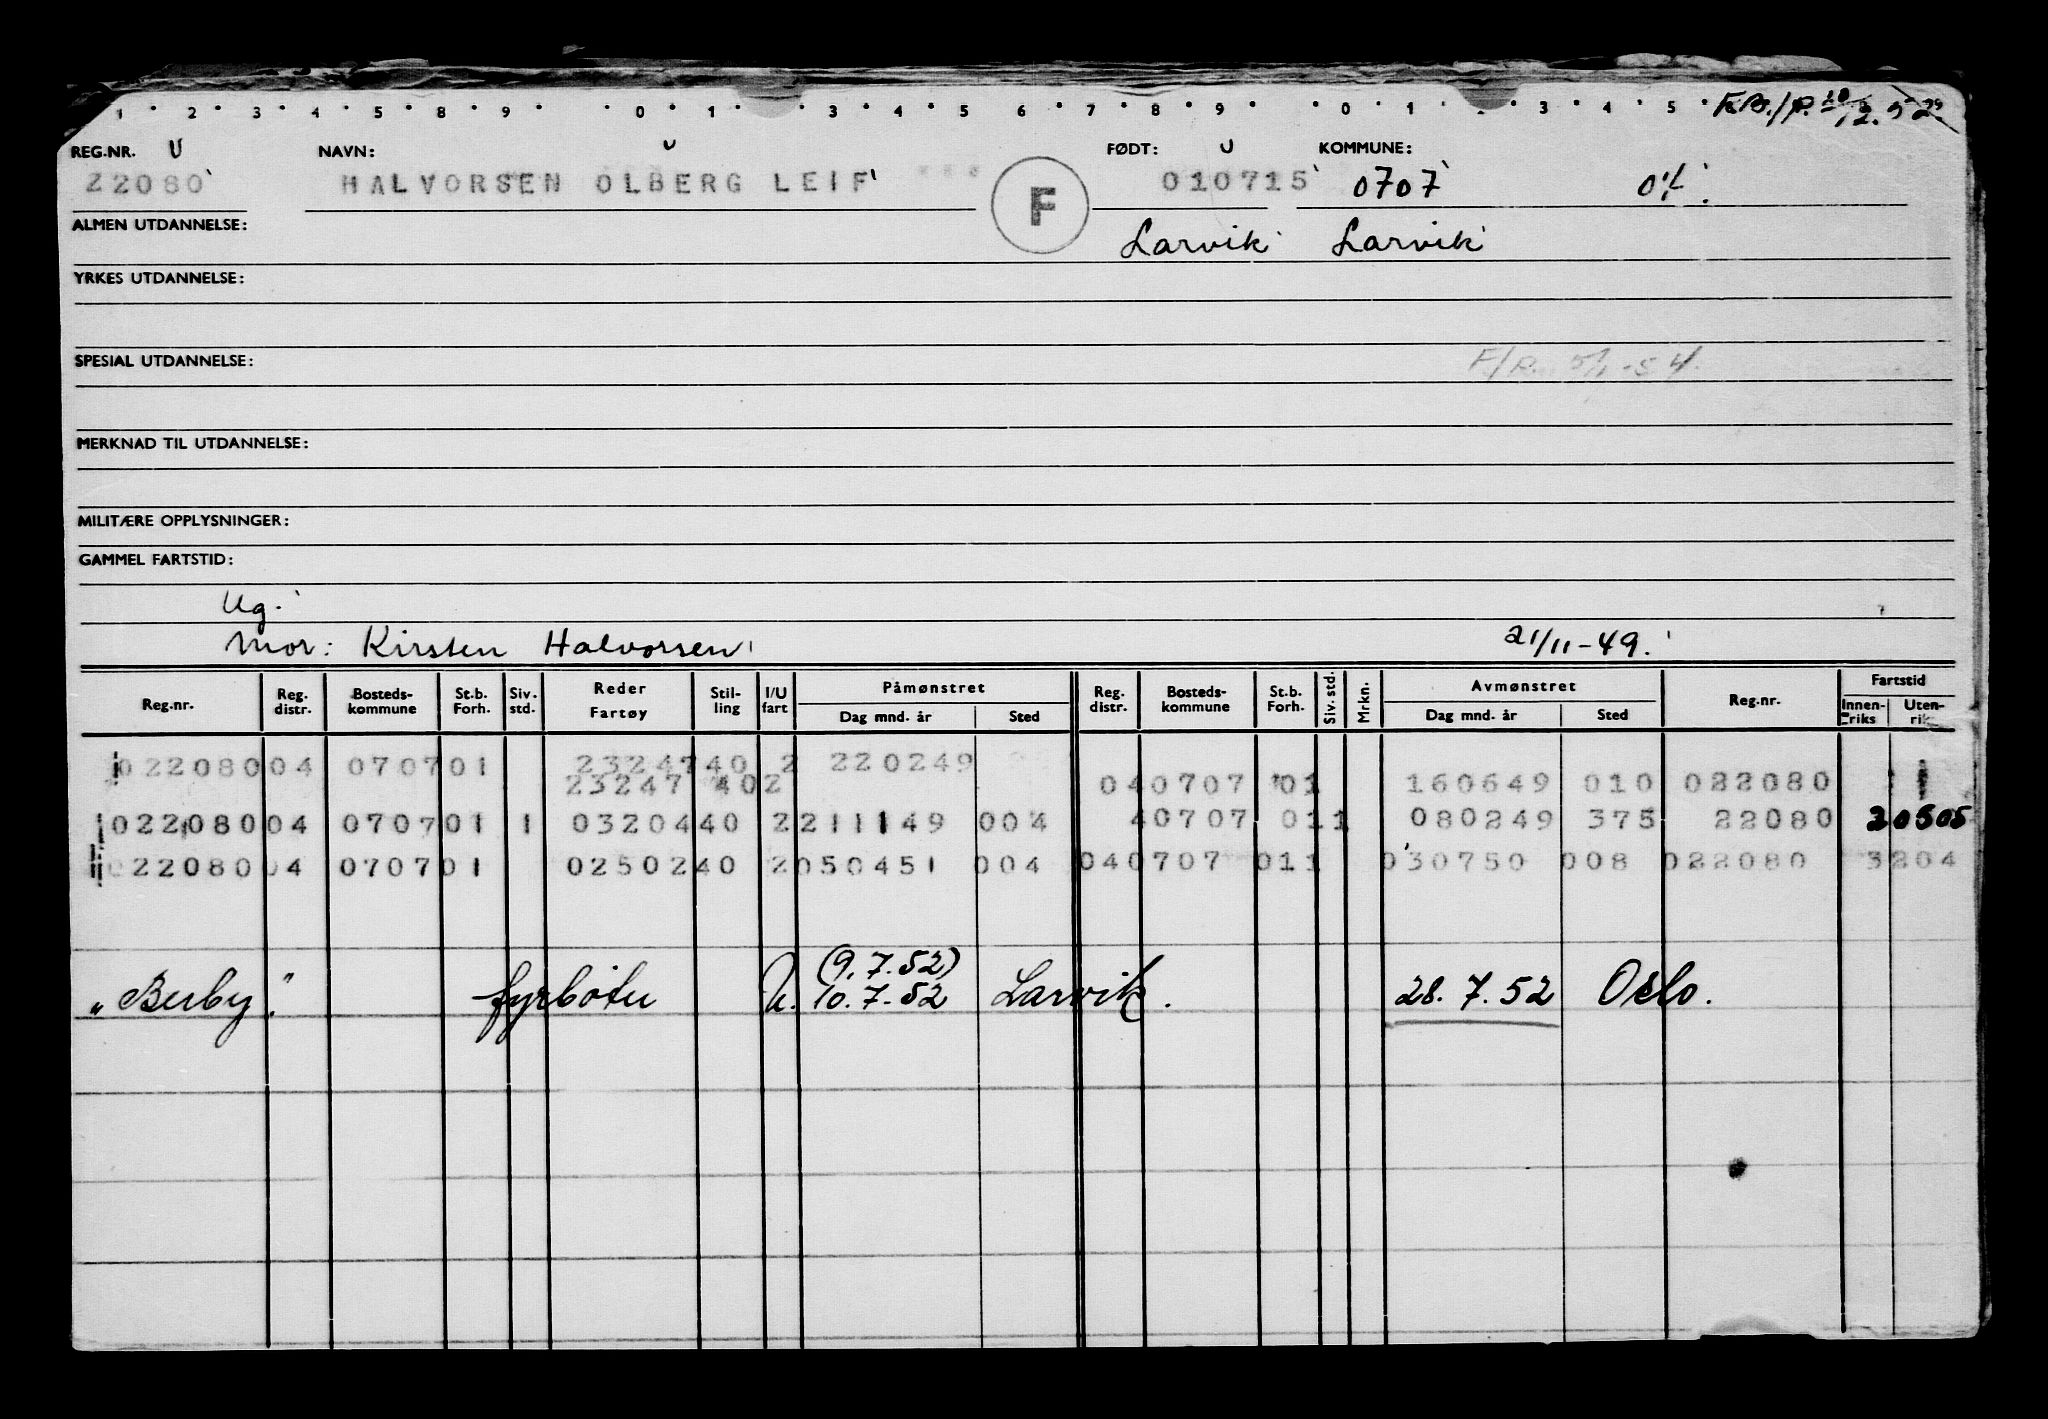 1 2 3 4 5 8 9 0 1 3 4 5 6 7 8 9 0 1 3 4 5
REG.NR. U NAVN: U FØDT: U KOMMUNE:
22080 HALVORSEN OLBERG LEIF F 010715 0707
ALMEN UTDANNELSE: Larvik Larvik
YRKES UTDANNELSE:
SPESIAL UTDANNELSE: F/R. 5/1-54.
MERKNAD TIL UTDANNELSE:
MILITÆRE OPPLYSNINGER:
GAMMEL FARTSTID:
Ug.
Mor: Kirsten Halvorsen 21/11-49.
Reg.nr. Reg. distr. Bosteds-kommune St.b. Forh. Siv. std. Reder Fartøy Stil-ling I/U fart Påmønstret Dag mnd. år Sted Reg. distr. Bosteds-kommune St.b. Forh. Siv. std. Mrkn. Avmønstret Dag mnd. år Sted Reg.nr. Fartstid Innen-riks Uten-rik
022080 04 0707 01 23247 40 2 220249
23247 402 040707 01 160649 010 022080
022080 04 0707 01 1 03204 40 2 211149 004 40707 011 080249 375 22080 20505
022080 04 0707 01 02502 40 2 050451 004 040707 011 030750 008 022080 3204
(9.7.52)
"Berby." fyrbøter U. 10.7.52 Larvik. 28.7.52 Oslo.